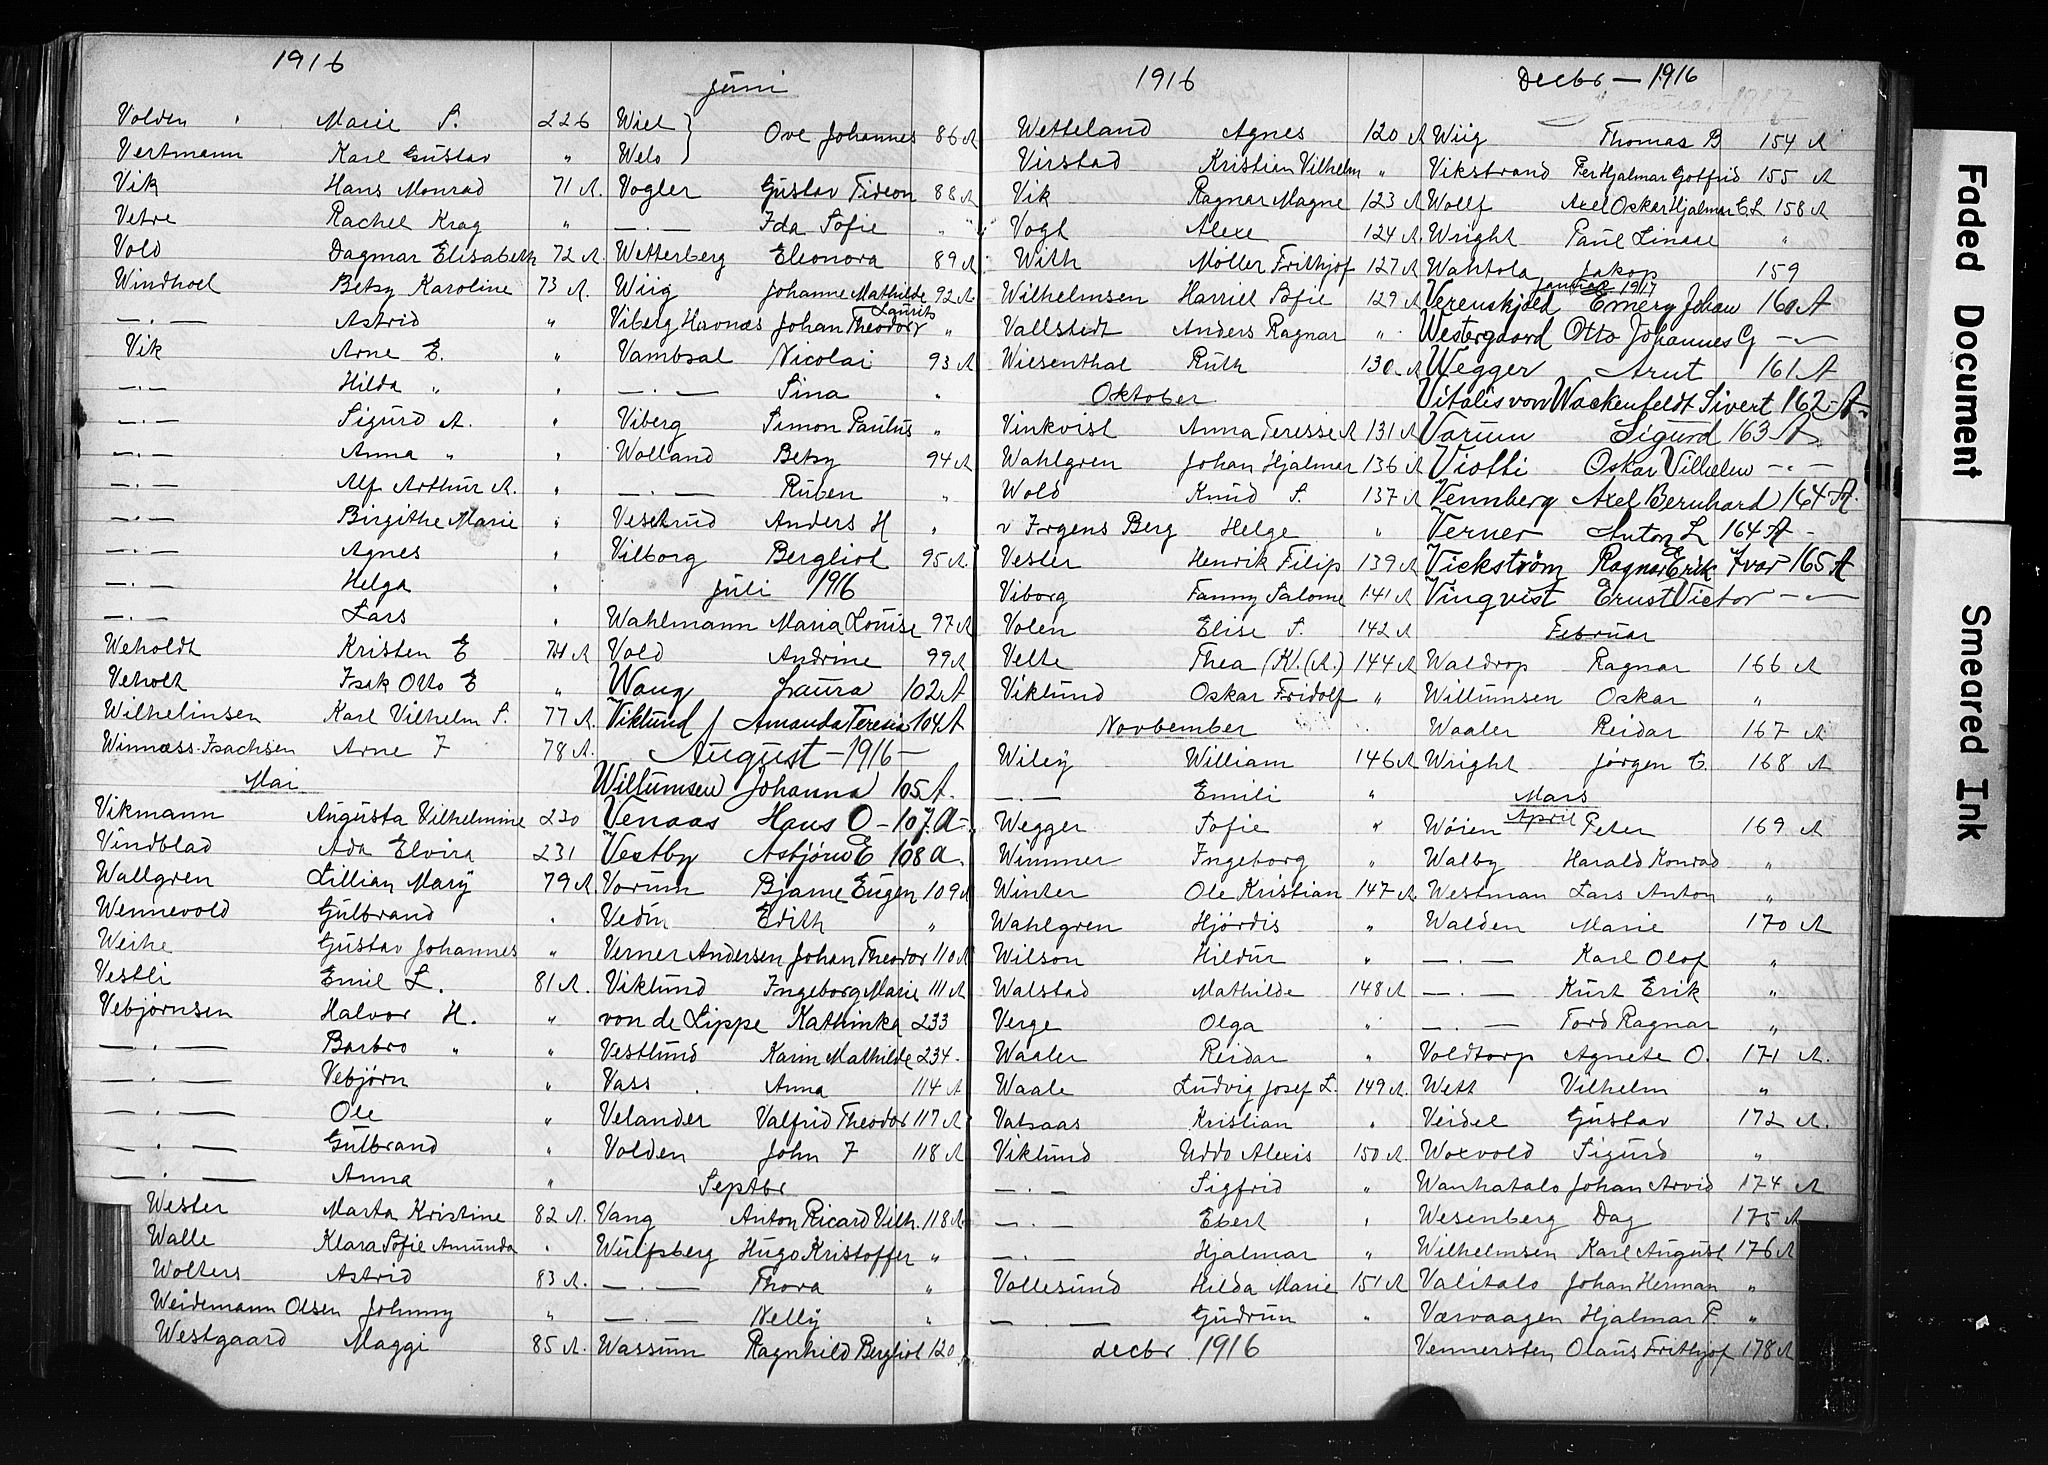 1916
Volden Marie S. 226
Vertmann Karl Gustav "
Vik Hans Monrad 71 A.
Vetre Rachel Krag "
Vold Dagmar Elisabeth 72 A.
Windhoel Betsy Karoline 73 A.
—.— Astrid "
Vik Arne E. "
—.— Hilda " "
—.— Sigurd A. "
—.— Anna " "
—.— Alf Arthur A. "
—.— Birgithe Marie "
—.— Agnes "
—.— Helga "
—.— Lars "
Weholdt Kristen E 74 A
Veholt Isak Otto E "
Wilhelmsen Karl Vilhelm S. 77 A.
Winnæss-Isachsen Arne F 78 A.
Mai
Vikmann Augusta Vilhelmine 230
Vindblad Ada Elvira 231
Wallgren Lillian Marÿ 79 A.
Wennevold Gulbrand "
Weihe Gustav Johannes "
Vestli Emil L. 81 A.
Vebjørnsen Halvor H. "
—.— Barbro " "
—.— Vebjørn "
—.— Ole "
—.— Gulbrand "
—.— Anna "
Wester Marta Kristine 82 A.
Walle Klara Sofie Amunda "
Wolters Astrid 83 A.
Weidemann Olsen Johnny "
Westgaard Maggi 85 A.
juni
Wiel } Ove Johannes 86 A
Welo }
Vogler Gustav Fideon 88 A
—.— Ida Sofie "
Wetterberg Eleonora 89 A
Wiig Johanne Mathilde 92 A
Viberg Havnæs Johan Theodor Laurits "
Vambsal Nicolai 93 A
—.— Sina "
Viberg Simon Paulus "
Wolland Betsy 94 A
—.— Ruben "
Vesetrud Anders H "
Vilborg Bergliot 95 A
juli 1916
Wahlmann Maria Louise 97 A
Vold Andrine 99 A
Wang Laura 102 A
Viklund Amanda Teresia 104 A
August—1916—
Willumsen Johanna 105 A.
Venaas Hans O — 107. A—
Vestby Astjørn E 108 A.
Vorum Bjarne Eugen 109 A
Vedum Edith "
Verner Andersen Johan Theodor 110 A
Viklund Ingeborg Marie 111 A
von de Lippe Kathinka 233
Vestlund Karin Mathilde 234
Vass Anna 114 A
Velander Valfrid Theodor 117 A
Volden John F 118 A
Septbr
Vang Anton Ricard Vilh. 118 A
Wulfsberg Hugo Kristoffer "
—.— Thora "
—.— Nellÿ "
Wassum Ragnhild Bergliot 120
1916
Wetteland Agnes 120 A
Virstad Kristian Vilhelm "
Vik Ragnar Magne 123 A
Vogt Alexe 124 A.
With Møller Frithjof 127 A
Wilhelmsen Harriet Sofie 129 A
Vallstedt Anders Ragnar "
Wiesenthal Ruth 130 A
Oktober
Vinkvist Anna Teresse A 131 A
Wahlgren Johan Hjalmer 136 A
Wold Knud S. 137 A
v Jørgens Berg Helge "
Vester Henrik Filip 139 A
Viborg Fanny Salome 141 A
Volen Elise S. 142 A
Velle Thea (K. (A.) 144 A
Viklund Oskar Fridolf "
Novbember
Wileÿ William 146 A
—.— Emili "
Wegger Sofie "
Wimmer Ingeborg "
Winter Ole Kristian 147 A.
Wahlgren Hjørdis "
Wilson Hildur "
Walstad Mathilde 148 A
Verge Olga "
Waaler Reidar "
Waale Ludvig Josef L. 149 A.
Vatsaas Kristian "
Viklund Uddo Alexis 150 A.
—.— Sigfrid "
—.— Ebert "
—.— Hjalmar "
Vollesund Hilda Marie 151 A
—.— Gudrun "
decbr 1916
Decbr — 1916
Wiig Thomas B 154 A
Vikstrand Per Hjalmar Gotfrid 155 A
Wolff Axel Oskar Hjalmar E. L 158 A
Wright Paul Linaae "
Wahtola Jakop 159
Januar 1917
Verenskjold Emery Johan 160 A
Westergaard Otto Johannes G —"—
Wegger Arut 161 A
Vitalis von Wackenfeldt Sivert 162-A-
Varum Sigurd 163 A
Viotti Oskar Vilhelm —.—
Vennberg Axel Bernhard 164-A.
Verner Anton L 164 A —
Vickström Ragnar Erik Yvar 165 A
Vinqvist Ernst Victor —"—
Februar
Waldrop Ragnar 166 A
Willumsen Oskar "
Waaler Reidar 167 A
Wright Jørgen C. 168 A
Mars
April
Wøien Peter 169 A
Walby Harald Konrad "
Westman Lars Anton "
Walden Marie 170 A
—.— Karl Olof "
—.— Kurt Erik "
—.— Tord Ragnar "
Voldtorp Agnete O. 171 A.
Wett Vilhelm "
Veidel Gustav 172 A.
Woxvold Sigurd "
Wanhatalo Johan Arvid 174 A
Wesenberg Dag 175 A
Wilhelmsen Karl August 176 A
Valitalo Johan Herman "
Værvaagen Hjalmar P. "
Vennersten Olaus Frithjof 178 A
Faded Document
Smeared Ink